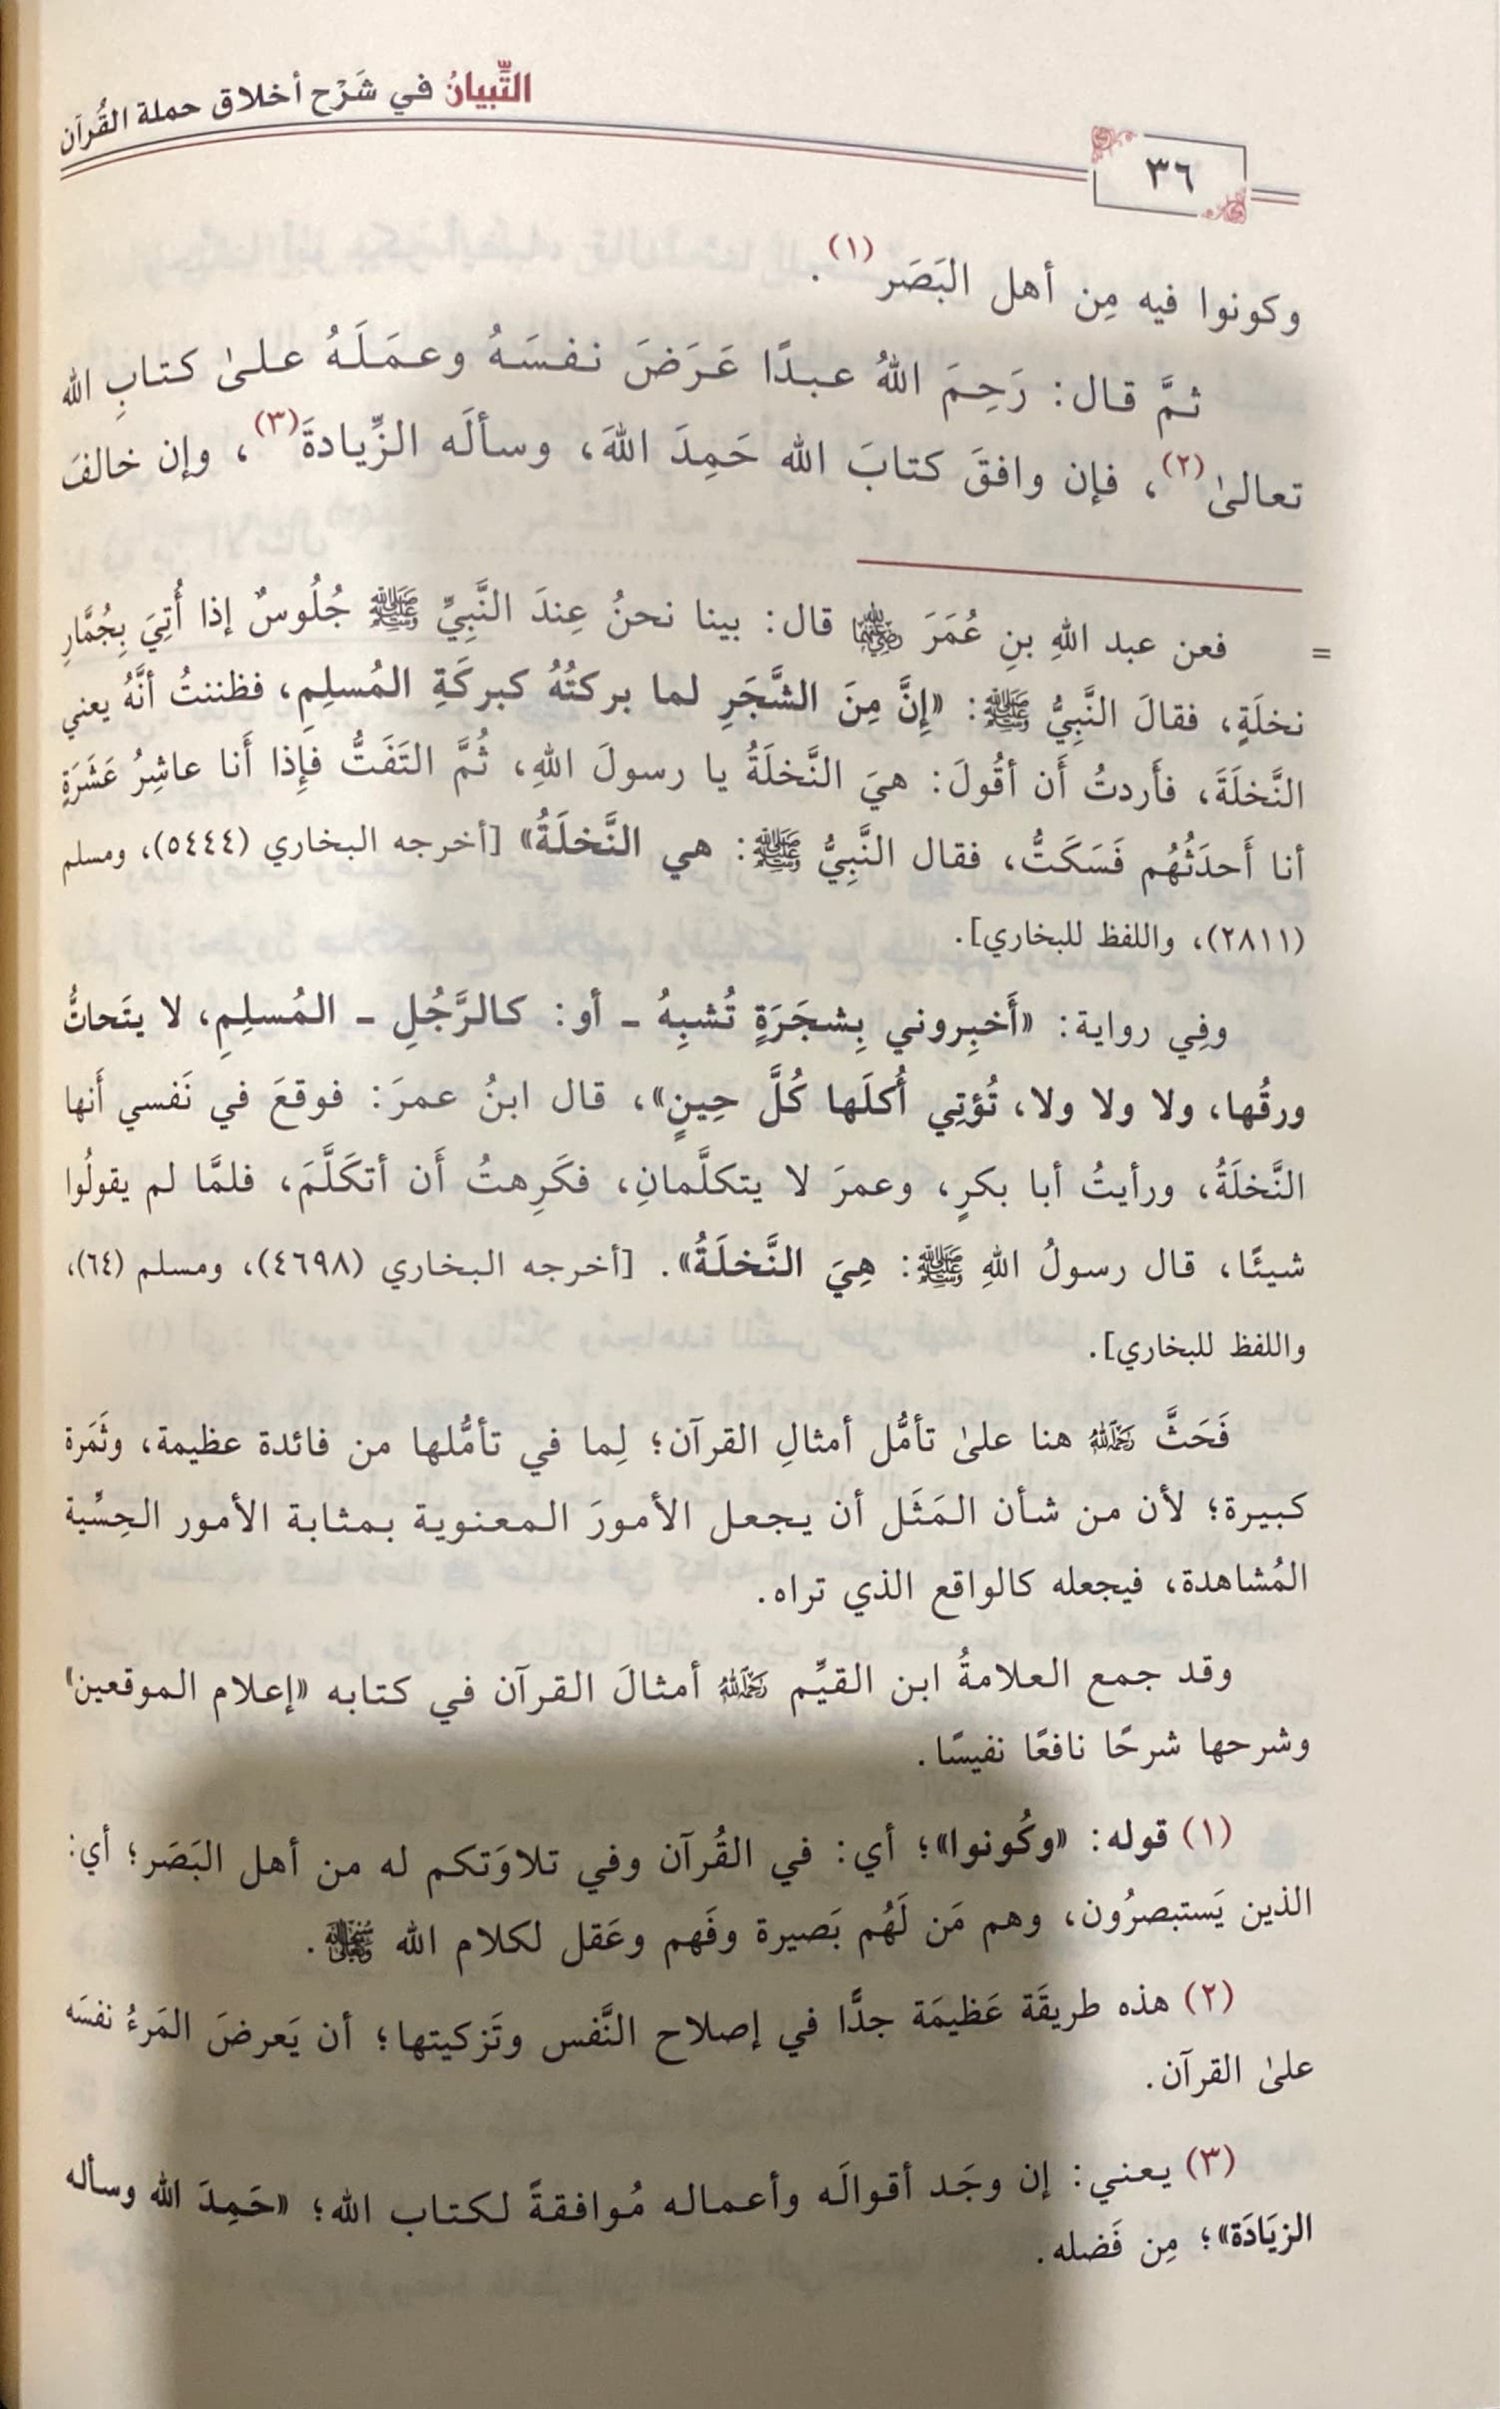 التِّبيانُ في شَرْح أخلاق حملة القُرآن
٣٦
وكونوا فيه مِن أهل البَصَر(١).
ثمَّ قال: رَحِمَ اللهُ عبدًا عَرَضَ نفسَهُ وعمَلَهُ علىٰ كتابِ الله
تعالىٰ(٢)، فإن وافقَ كتابَ الله حَمِدَ اللهَ، وسألَه الزِّيادةَ(٣)، وإن خالفَ
= فعن عبد اللهِ بنِ عُمَرَ رضي الله عنهما قال: بينا نحنُ عِندَ النَّبِيِّ ﷺ جُلُوسٌ إذا أُتِيَ بِجُمَّارِ
نخلَةٍ، فقالَ النَّبِيُّ ﷺ: «إِنَّ مِنَ الشَّجَرِ لما بركتُهُ كبركَةِ المُسلِمِ، فظننتُ أنَّهُ يعني
النَّخلَةَ، فأَردتُ أَن أقُولَ: هيَ النَّخلَةُ يا رسولَ اللهِ، ثُمَّ التَفَتُّ فإِذا أَنا عاشِرُ عَشَرَةٍ
أنا أَحدَثُهُم فَسَكَتُّ، فقال النَّبِيُّ ﷺ: هي النَّخلَةُ» [أخرجه البخاري (٥٤٤٤)، ومسلم
(٢٨١١)، واللفظ للبخاري].
وفِي رواية: «أَخبِروني بِشجَرَةٍ تُشبِهُ ـ أو: كالرَّجُلِ ـ المُسلِمِ، لا يتَحاتُّ
ورقُها، ولا ولا ولا، تُؤتِي أُكلَها كُلَّ حِينٍ»، قال ابنُ عمرَ: فوقعَ في نَفسي أَنها
النَّخلَةُ، ورأيتُ أبا بكرٍ، وعمرَ لا يتكلَّمانِ، فكَرِهتُ أَن أتكَلَّمَ، فلمَّا لم يقولُوا
شيئًا، قال رسولُ اللهِ ﷺ: هِيَ النَّخلَةُ». [أخرجه البخاري (٤٦٩٨)، ومسلم (٦٤)،
واللفظ للبخاري].
فَحَثَّ رحمه الله هنا علىٰ تأمُّل أمثالِ القرآن؛ لِما في تأمُّلها من فائدة عظيمة، وثَمَرة
كبيرة؛ لأن من شأن المَثَل أن يجعل الأمورَ المعنوية بمثابة الأمور الحِسِّية
المُشاهدة، فيجعله كالواقع الذي تراه.
وقد جمع العلامةُ ابن القيِّم رحمه الله أمثالَ القرآن في كتابه «إعلام الموقعين»
وشرحها شرحًا نافعًا نفيسًا.
(١) قوله: «وكُونوا»؛ أي: في القُرآن وفي تلاوَتكم له من أهل البَصَر؛ أي:
الذين يَستبصرُون، وهم مَن لَهُم بَصيرة وفَهم وعَقل لكلام الله سبحانه وتعالى.
(٢) هذه طريقَة عَظيمَة جدًّا في إصلاح النَّفس وتَزكيتها؛ أن يَعرضَ المَرءُ نفسَه
علىٰ القرآن.
(٣) يعني: إن وجَد أقوالَه وأعماله مُوافقةً لكتاب الله؛ «حَمِدَ الله وسأله
الزيَادَة»؛ مِن فَضله.